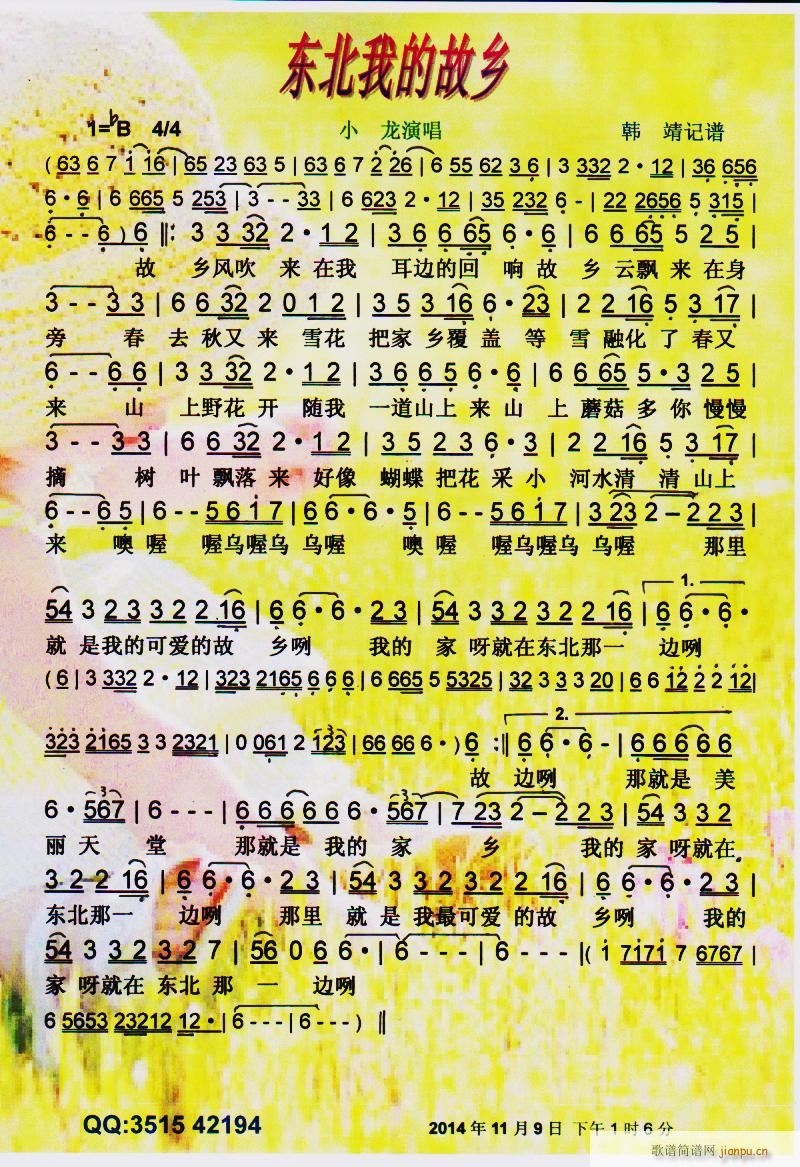 东北我的故乡
1=♭B 4/4 小 龙演唱 韩 靖记谱
(63 6 7 1 16 | 65 23 63 5 | 63 6 7 2·26 | 6 55 62 3 6 | 3 332 2·12 | 36 656
6·6 | 6 665 5 253 | 3--33 | 6 623 2·12 | 35 232 6- | 22 2656 5 315 |
6--6) 6 ‖: 3 3 32 2·1 2 | 3 6 6 65 6·6 | 6 6 65 5 2 5 |
故 乡风吹 来 在我 耳边的回 响 故 乡 云飘 来 在身
3--3 3 | 6 6 32 2 0 1 2 | 3 5 3 16 6·23 | 2 2 16 5 3 17 |
旁 春 去 秋又 来 雪花 把家 乡覆 盖 等 雪 融化 了 春又
6--6 6 | 3 3 32 2·1 2 | 3 6 6 5 6·6 | 6 6 65 5·3 2 5 |
来 山 上野花 开 随我 一道山上 来 山 上 蘑菇 多 你 慢慢
3--3 3 | 6 6 32 2·1 2 | 3 5 2 3 6·3 | 2 2 16 5 3 17 |
摘 树 叶 飘落 来 好像 蝴蝶 把花 采 小 河水清 清 山上
6--6 5 | 6--5 6 1 7 | 6 6·6·5 | 6--5 6 1 7 | 3 23 2-2 2 3 |
来 噢 喔 喔乌喔乌 乌喔 噢 喔 喔乌喔乌 乌喔 那里
54 3 2 3 3 2 2 16 | 6 6·6·2 3 | 54 3 3 2 3 2 2 16 | 1. 6 6·6·
就 是我的可爱的故 乡咧 我的 家 呀就在东北那一 边咧
(6 | 3 332 2·12 | 323 2165 6 6 6 | 6 665 5 5325 | 32 3 3 3 20 | 6 6 12 2 2 12 |
323 2165 3 3 2321 | 0 061 2 123 | 66 66 6·) 6 :‖ 2. 6 6·6- | 6 6 6 6 6 6
故 边咧 那就是 美
6·567 | 6--- | 6 6 6 6 6 6·567 | 7 23 2-2 2 3 | 54 3 3 2
丽 天 堂 那就是 我的 家 乡 我的 家 呀就在
3 2 2 16 | 6 6·6·2 3 | 54 3 3 2 3 2 2 16 | 6 6·6·2 3 |
东北那一 边咧 那里 就 是 我最可爱 的故 乡咧 我的
54 3 3 2 3 2 7 | 56 0 6 6· | 6--- | 6--- | (1 7171 7 6767 |
家 呀就在 东北 那 一 边咧
6 5653 23212 12· | 6--- | 6---) ‖
QQ:3515 42194
2014 年 11 月 9 日 下午 1 时 6 分
歌谱简谱网 jianpu.cn